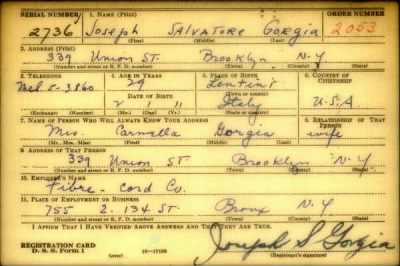 SERIAL NUMBER 1. NAME (Print) ORDER NUMBER
2736 Joseph Salvatore Gorgia 2053
(First) (Middle) (Last)
2. ADDRESS (Print)
339 Union St. Brooklyn N.Y
(Number and street or R. F. D. number) (Town) (County) (State)
3. TELEPHONE 4. AGE IN YEARS 5. PLACE OF BIRTH 6. COUNTRY OF CITIZENSHIP
Mel. 5-3860 29 Lentini
DATE OF BIRTH (Town or county)
Italy U.S.A
(Exchange) (Number) (Mo.) (Day) (Yr.) (State or country)
7. NAME OF PERSON WHO WILL ALWAYS KNOW YOUR ADDRESS 8. RELATIONSHIP OF THAT PERSON
Mrs. Carmella Gorgia wife
(Mr., Mrs., Miss) (First) (Middle) (Last)
9. ADDRESS OF THAT PERSON
339 Union St. Brooklyn N.Y
(Number and street or R. F. D. number) (Town) (County) (State)
10. EMPLOYER'S NAME
Fibre-Cord Co.
11. PLACE OF EMPLOYMENT OR BUSINESS
755 134 St. Bronx N.Y
(Number and street or R. F. D. number) (Town) (County) (State)
I AFFIRM THAT I HAVE VERIFIED ABOVE ANSWERS AND THAT THEY ARE TRUE.
REGISTRATION CARD
D. S. S. Form 1 (over) Joseph S Gorgia